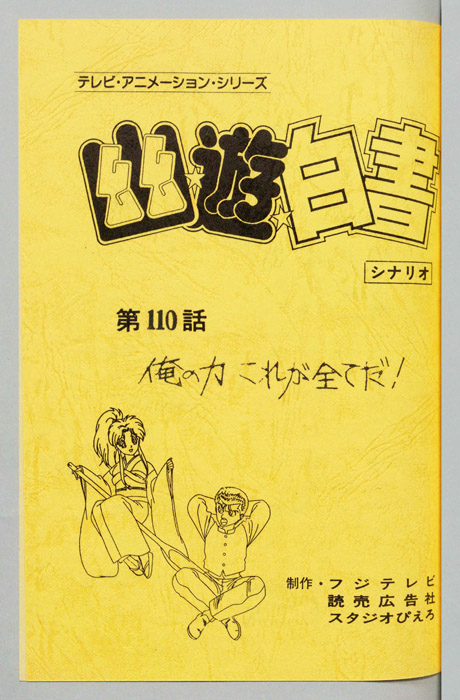 テレビ・アニメーション・シリーズ
幽☆遊☆白書
シナリオ
第110話
俺の力 これが全てだ!
制作・フジテレビ
読売広告社
スタジオぴえろ